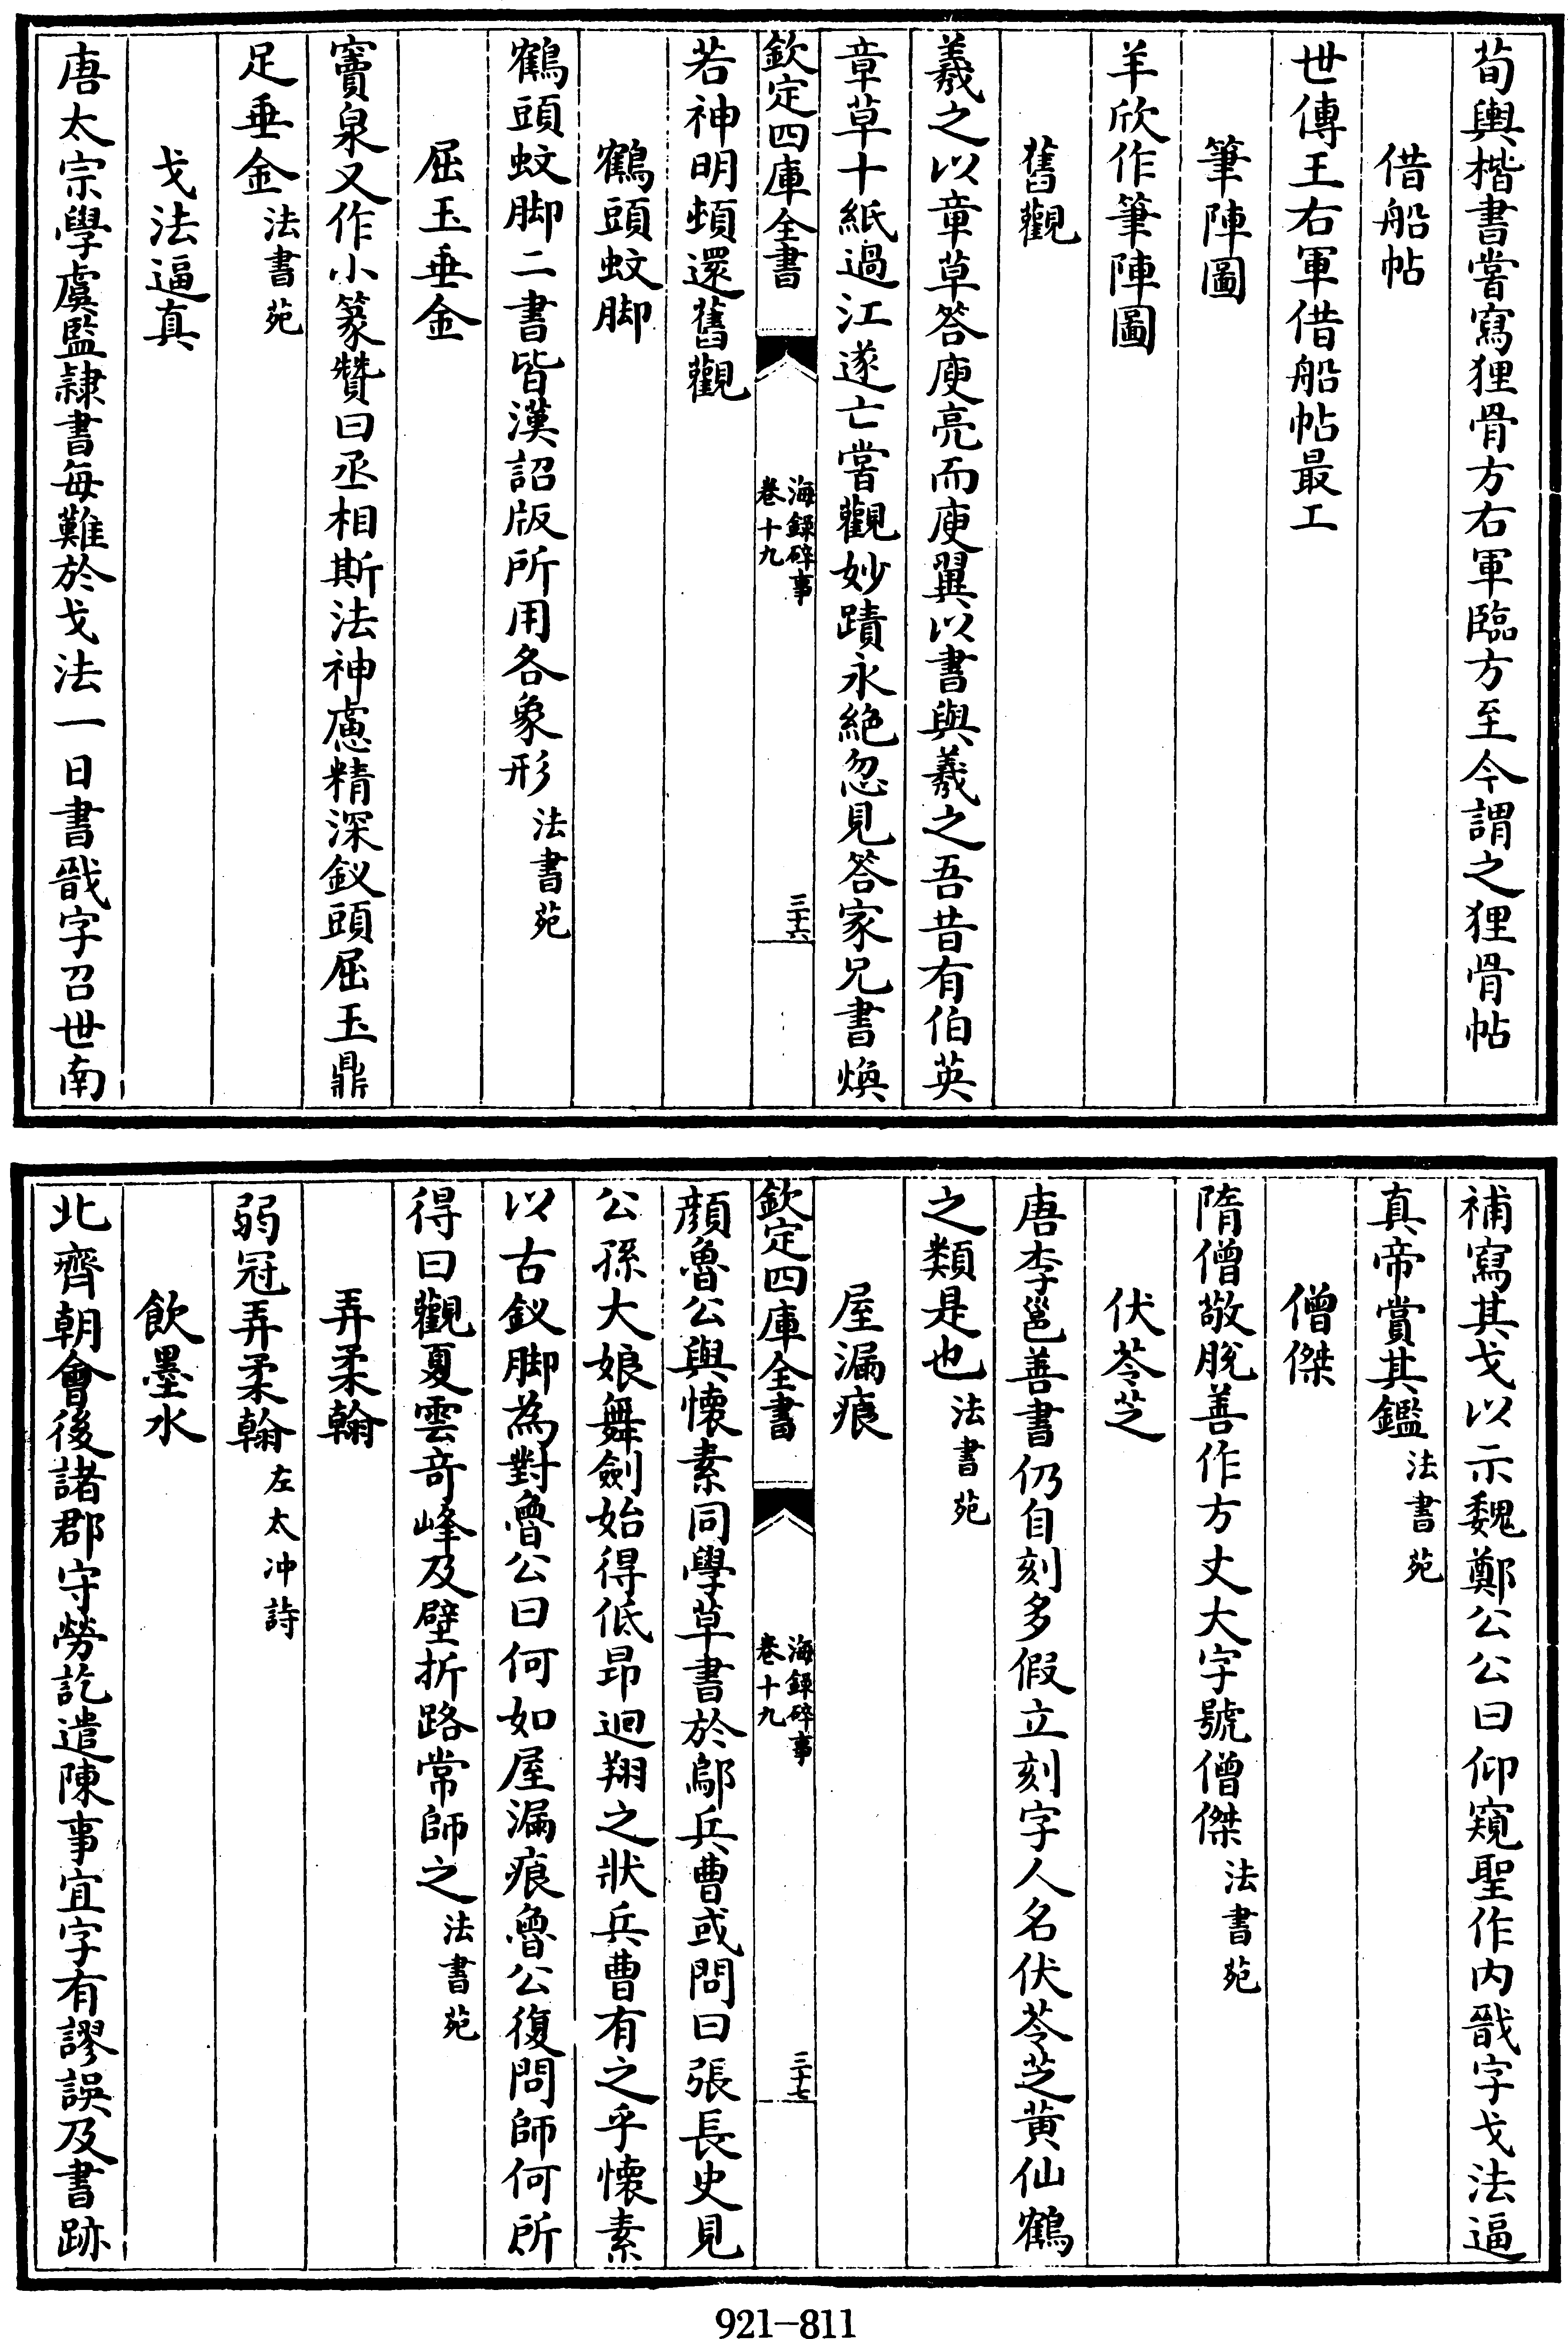 荀輿楷書嘗寫狸骨方右軍臨方至今謂之狸骨帖
借船帖
世傳王右軍借船帖最工
筆陣圖
羊欣作筆陣圖
舊觀
羲之以章草答庾亮而庾翼以書與羲之吾昔有伯英
章草十紙過江遂亡嘗觀妙蹟永絶忽見答家兄書煥
欽定四庫全書
海錄碎事
卷十九
三十六
若神明頓還舊觀
鶴頭蚊脚
鶴頭蚊脚二書皆漢詔版所用各象形法書苑
屈玉垂金
竇泉又作小篆贊曰丞相斯法神慮精深釵頭屈玉鼎
足垂金法書苑
戈法逼真
唐太宗學虞監隷書每難於戈法一日書戩字召世南
補寫其戈以示魏鄭公公曰仰窺聖作内戩字戈法逼
真帝賞其鑑法書苑
僧傑
隋僧敬脫善作方丈大字號僧傑法書苑
伏苓芝
唐李邕善書仍自刻多假立刻字人名伏苓芝黄仙鶴
之類是也法書苑
屋漏痕
欽定四庫全書
海錄碎事
卷十九
三十七
顔魯公與懷素同學草書於鄔兵曹或問曰張長史見
公孫大娘舞劍始得低昂迴翔之狀兵曹有之乎懷素
以古釵脚為對魯公曰何如屋漏痕魯公復問師何所
得曰觀夏雲奇峰及壁折路常師之法書苑
弄柔翰
弱冠弄柔翰左太冲詩
飲墨水
北齊朝會後諸郡守勞訖遣陳事宜字有謬誤及書跡
921-811